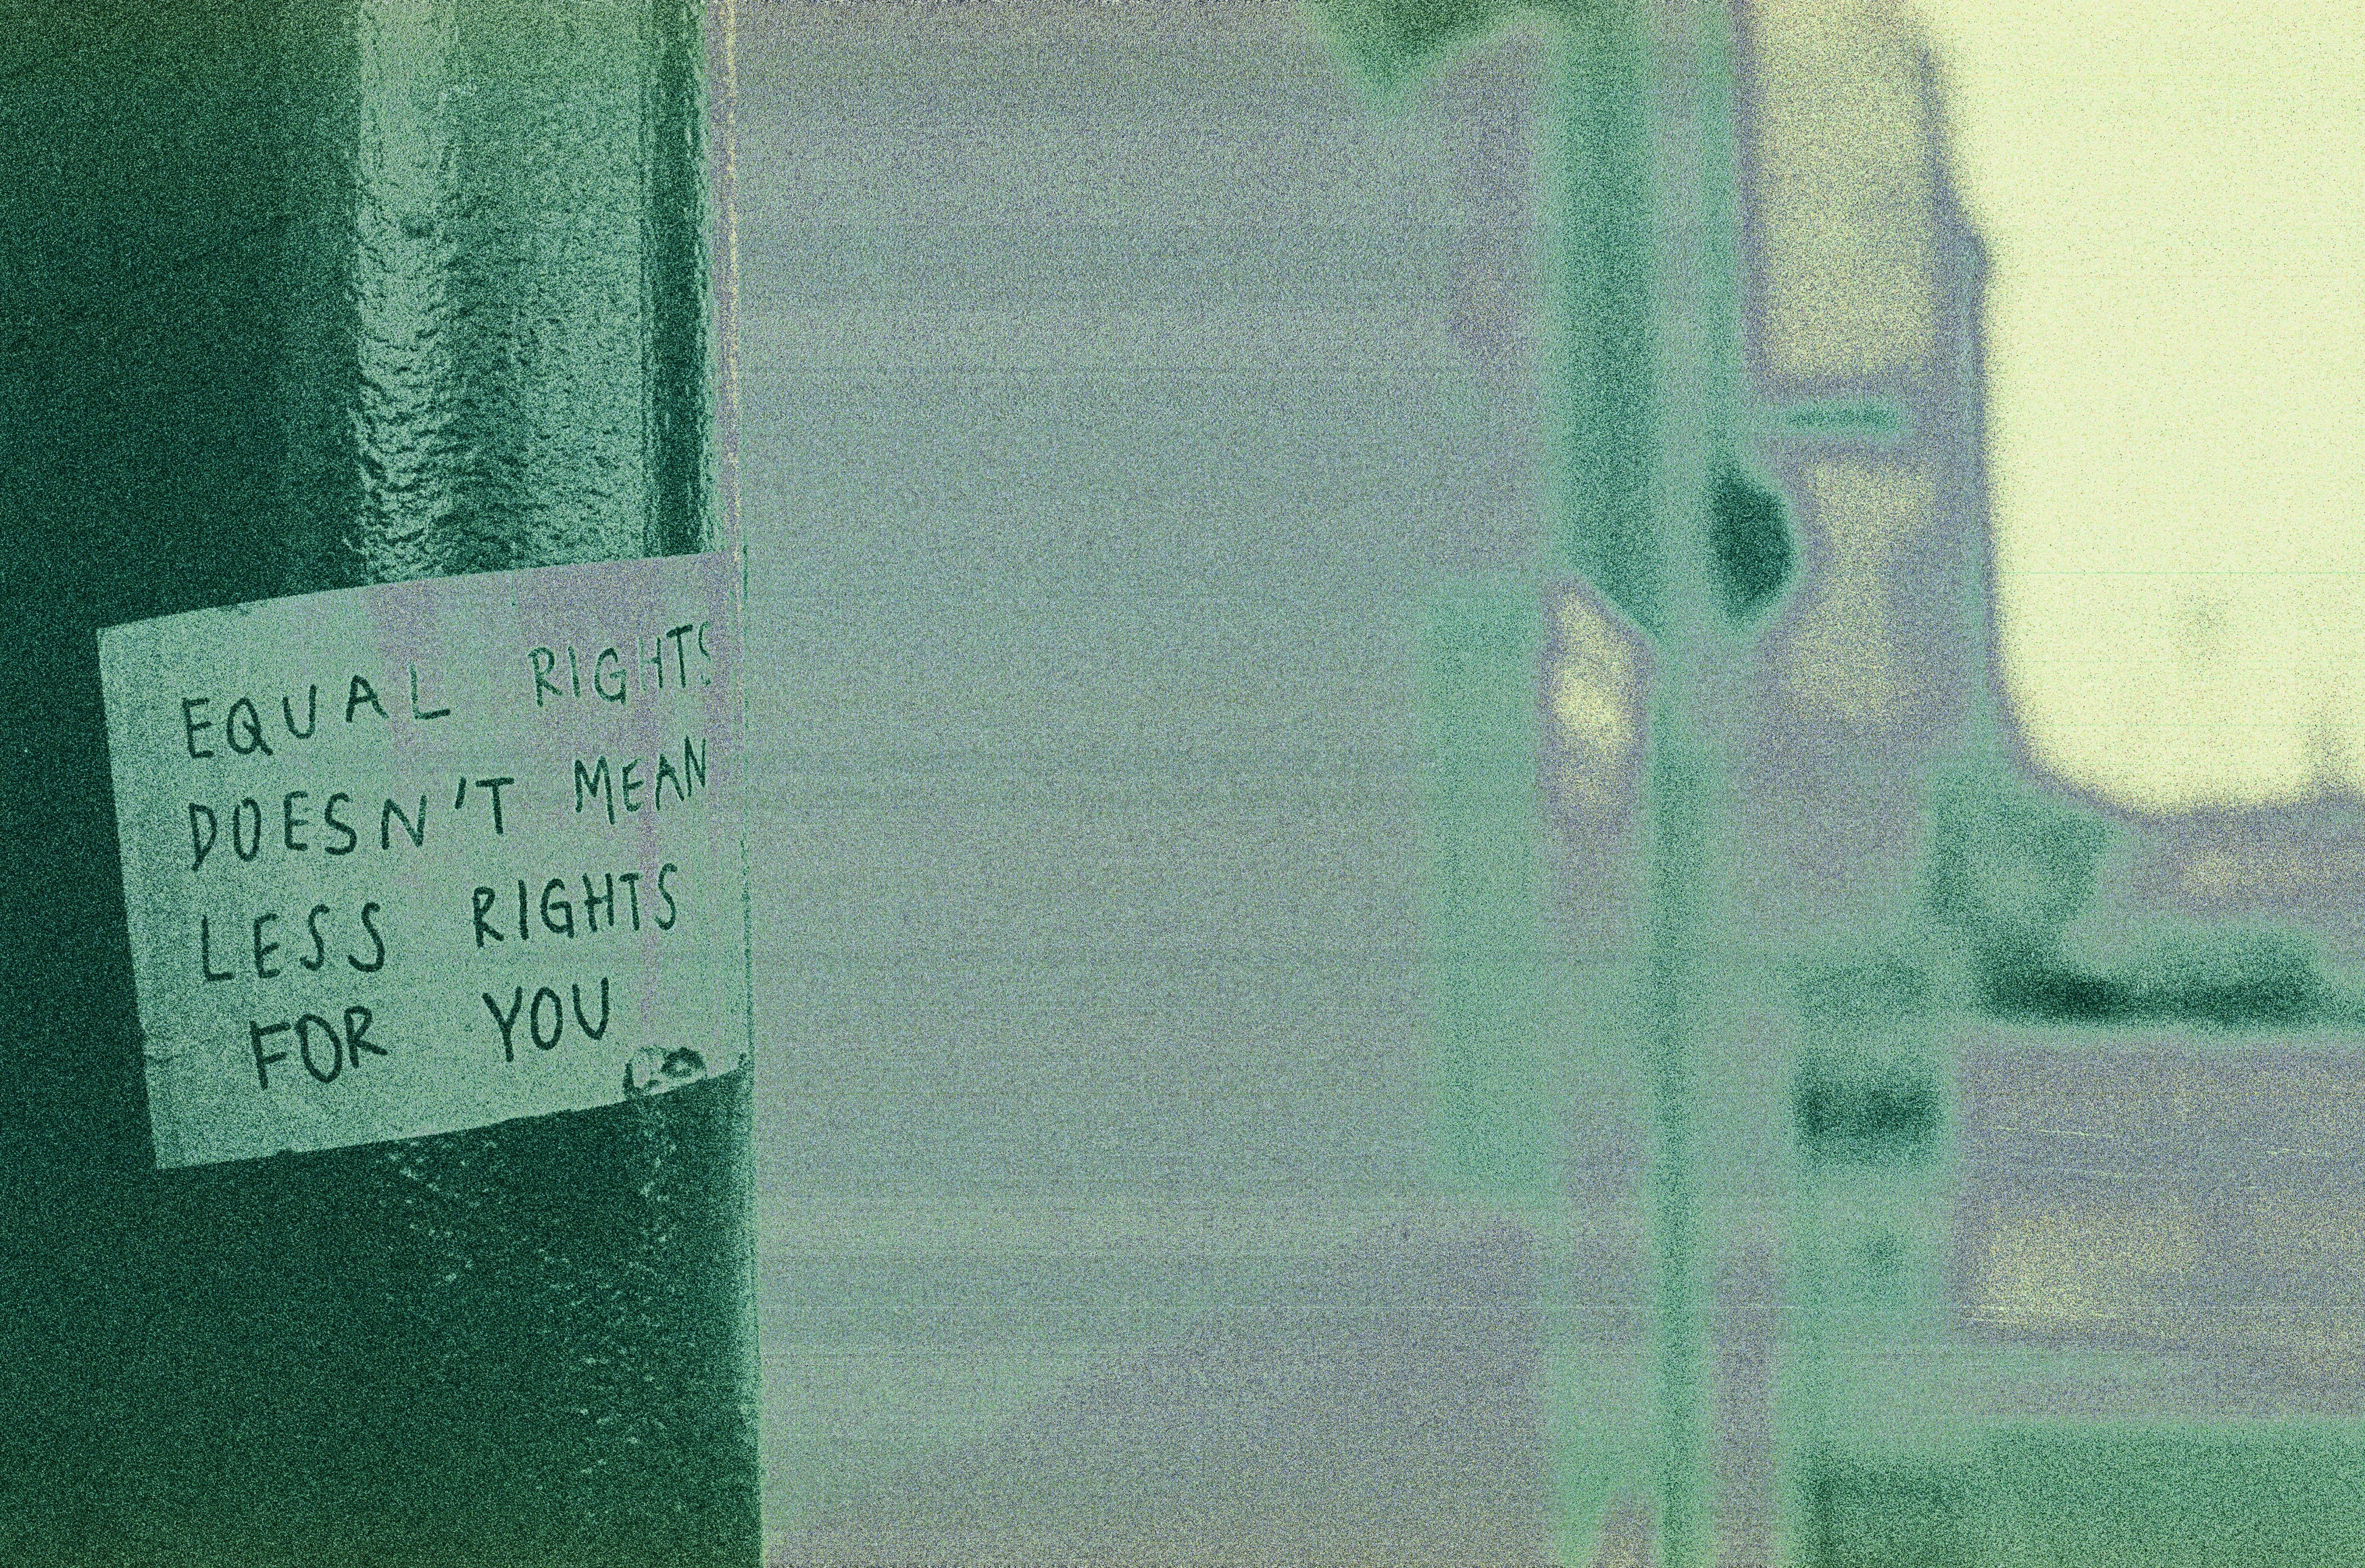 EQUAL RIGHTS
DOESN'T MEAN
LESS RIGHTS
FOR YOU